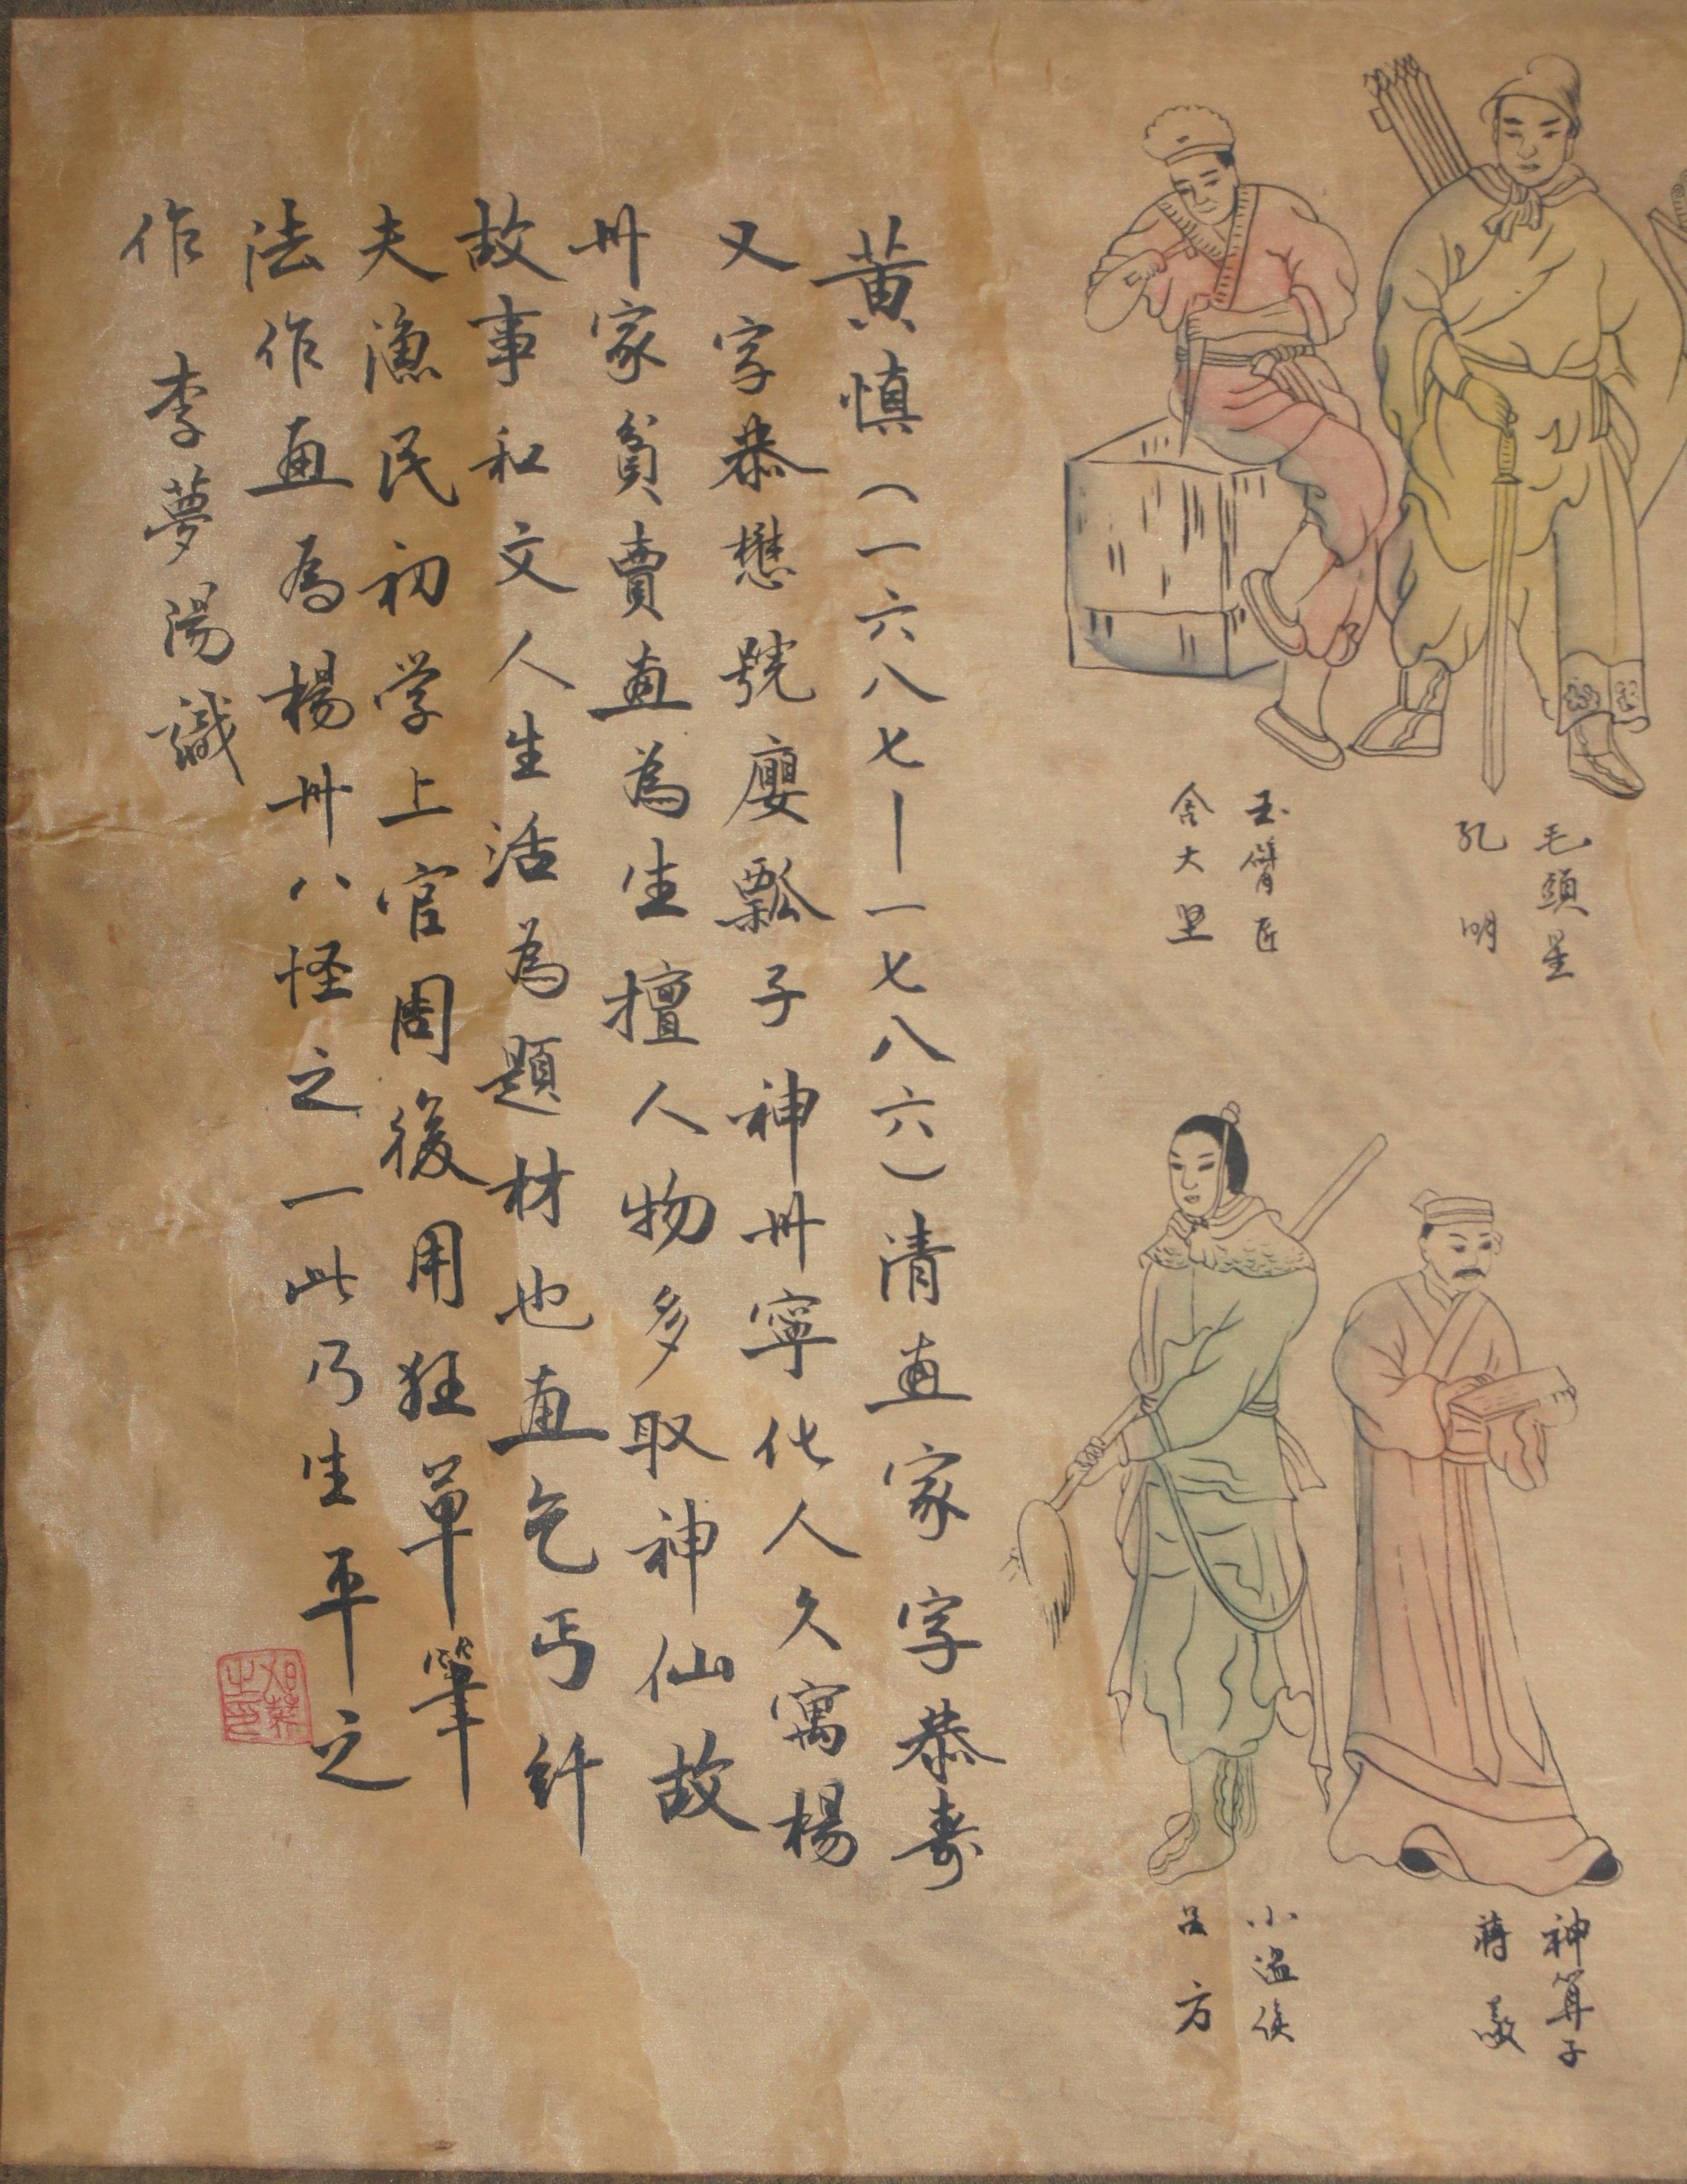 毛頭星
孔明
玉臂匠
金大坚
神算子
蒋敬
小温侯
吕方
黄慎（一六八七—一七八六）清画家字恭寿
又字恭懋號廮瓢子神州寧化人久寓楊
州家貧賣画為生擅人物多取神仙故
故事和文人生活為題材也画乞丐纤
夫漁民初学上官周後用狂草筆
法作画為楊州八怪之一此乃生平之
作 李夢湯識